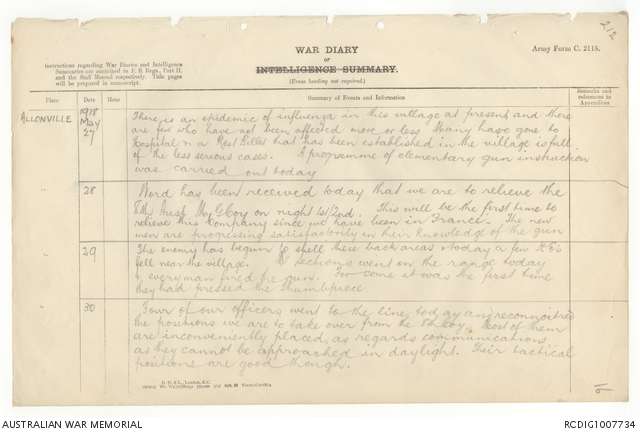 212
WAR DIARY
or
INTELLIGENCE SUMMARY.
(Erase heading not required.)
Army Form C. 2118.
Instructions regarding War Diaries and Intelligence
Summaries are contained in F. S. Regs., Part II.
and the Staff Manual respectively. Title pages
will be prepared in manuscript.
Place
Date
Hour
Summary of Events and Information
Remarks and
references to
Appendices
ALLONVILLE
1918
May
27
There is an epidemic of influenza in this village at present and there
are few who have not been affected more or less. Many have gone to
Hospital & a Rest Billet that has been established in the village is full
of the less serious cases. A programme of elementary gun instruction
was carried out today
28
Word has been received today that we are to relieve the
8th Aust M G Coy on night 1st/2nd. This will be the first time to
relieve this Company since we have been in France. The new
men are progressing satisfactorily in their knowledge of the gun
29
The enemy has begun to shell these back areas & today a few H.E's
fell near the village. sections went on the range today
& every man fired the gun. For some it was the first time
they had pressed the thumbpiece
30
Four of our officers went to the line today and reconnoitred
the positions we are to take over from the 8th Coy. Most of them
are inconveniently placed as regards communications
as they cannot be approached in daylight. Their tactical
positions are good though.
5
AUSTRALIAN WAR MEMORIAL
RCDIG1007734